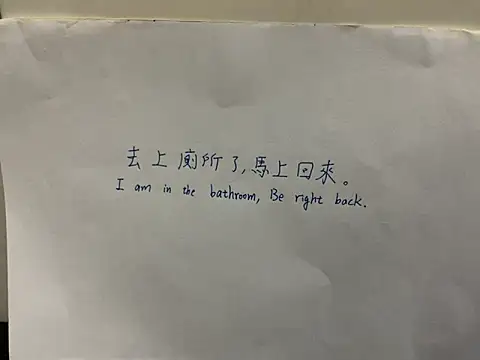 去上廁所了,馬上回來。
I am in the bathroom, Be right back.